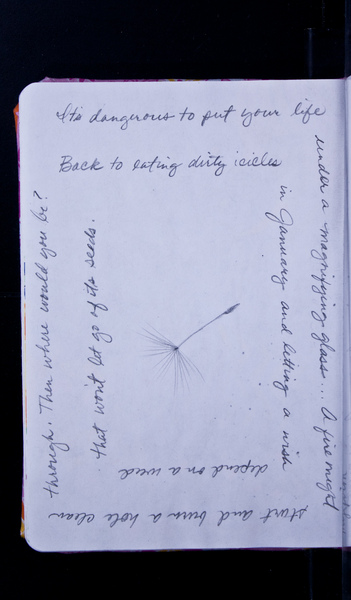 It's dangerous to put your life
under a magnifying glass... A fire might
start and burn a hole clean
through. Then where would you be?
Back to eating dirty icicles
in January and letting a wish
depend on a weed
that won't let go of its seeds.